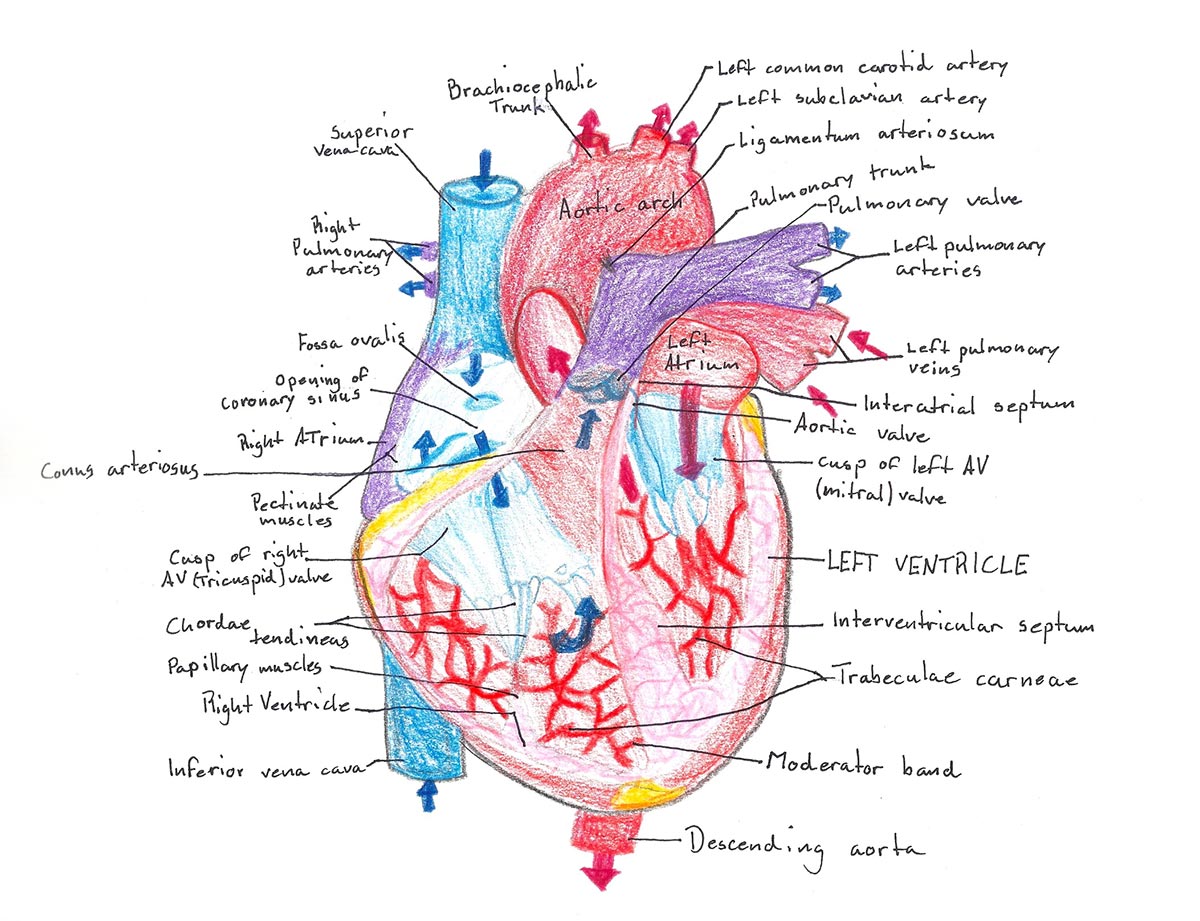 Brachiocephalic
Trunk
Left common carotid artery
Left subclavian artery
Ligamentum arteriosum
Superior
vena cava
Aortic arch
Pulmonary trunk
Pulmonary valve
Right
Pulmonary
arteries
Left pulmonary
arteries
Fossa ovalis
Left
Atrium
Left pulmonary
veins
Opening of
coronary sinus
Interatrial septum
Right Atrium
Aortic valve
Conus arteriosus
Cusp of left AV
(mitral) valve
Pectinate
muscles
Cusp of right
AV (Tricuspid) valve
LEFT VENTRICLE
Chordae
tendineas
Interventricular septum
Papillary muscles
Trabeculae carneae
Right Ventricle
Inferior vena cava
Moderator band
Descending aorta